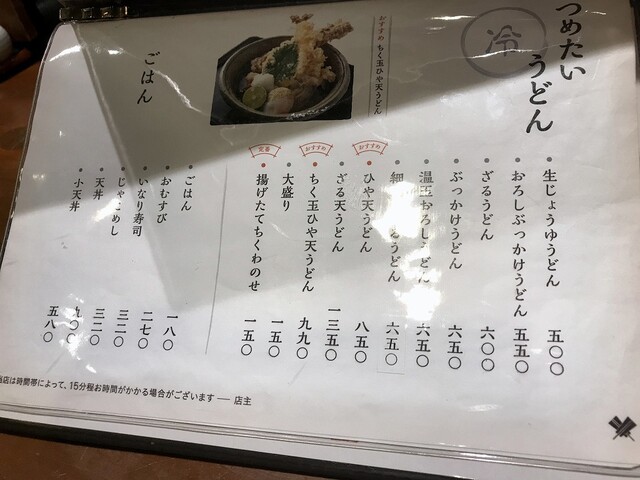 つめたい
うどん
冷
生じょうゆうどん 五〇〇
おろしぶっかけうどん 五五〇
ざるうどん 六〇〇
ぶっかけうどん 六五〇
温玉おろしうどん 六五〇
うどん 六五〇
おすすめ
ひや天うどん 八五〇
ざる天うどん 一三五〇
おすすめ
ちく玉ひや天うどん 九九〇
大盛り 一五〇
定番
揚げたてちくわのせ 一五〇
おすすめ ちく玉ひや天うどん
ごはん
ごはん 一八〇
おむすび 二七〇
いなり寿司 三二〇
じゃこめし 三二〇
天丼 九〇〇
小天丼 五八〇
当店は時間帯によって、15分程お時間がかかる場合がございます ― 店主